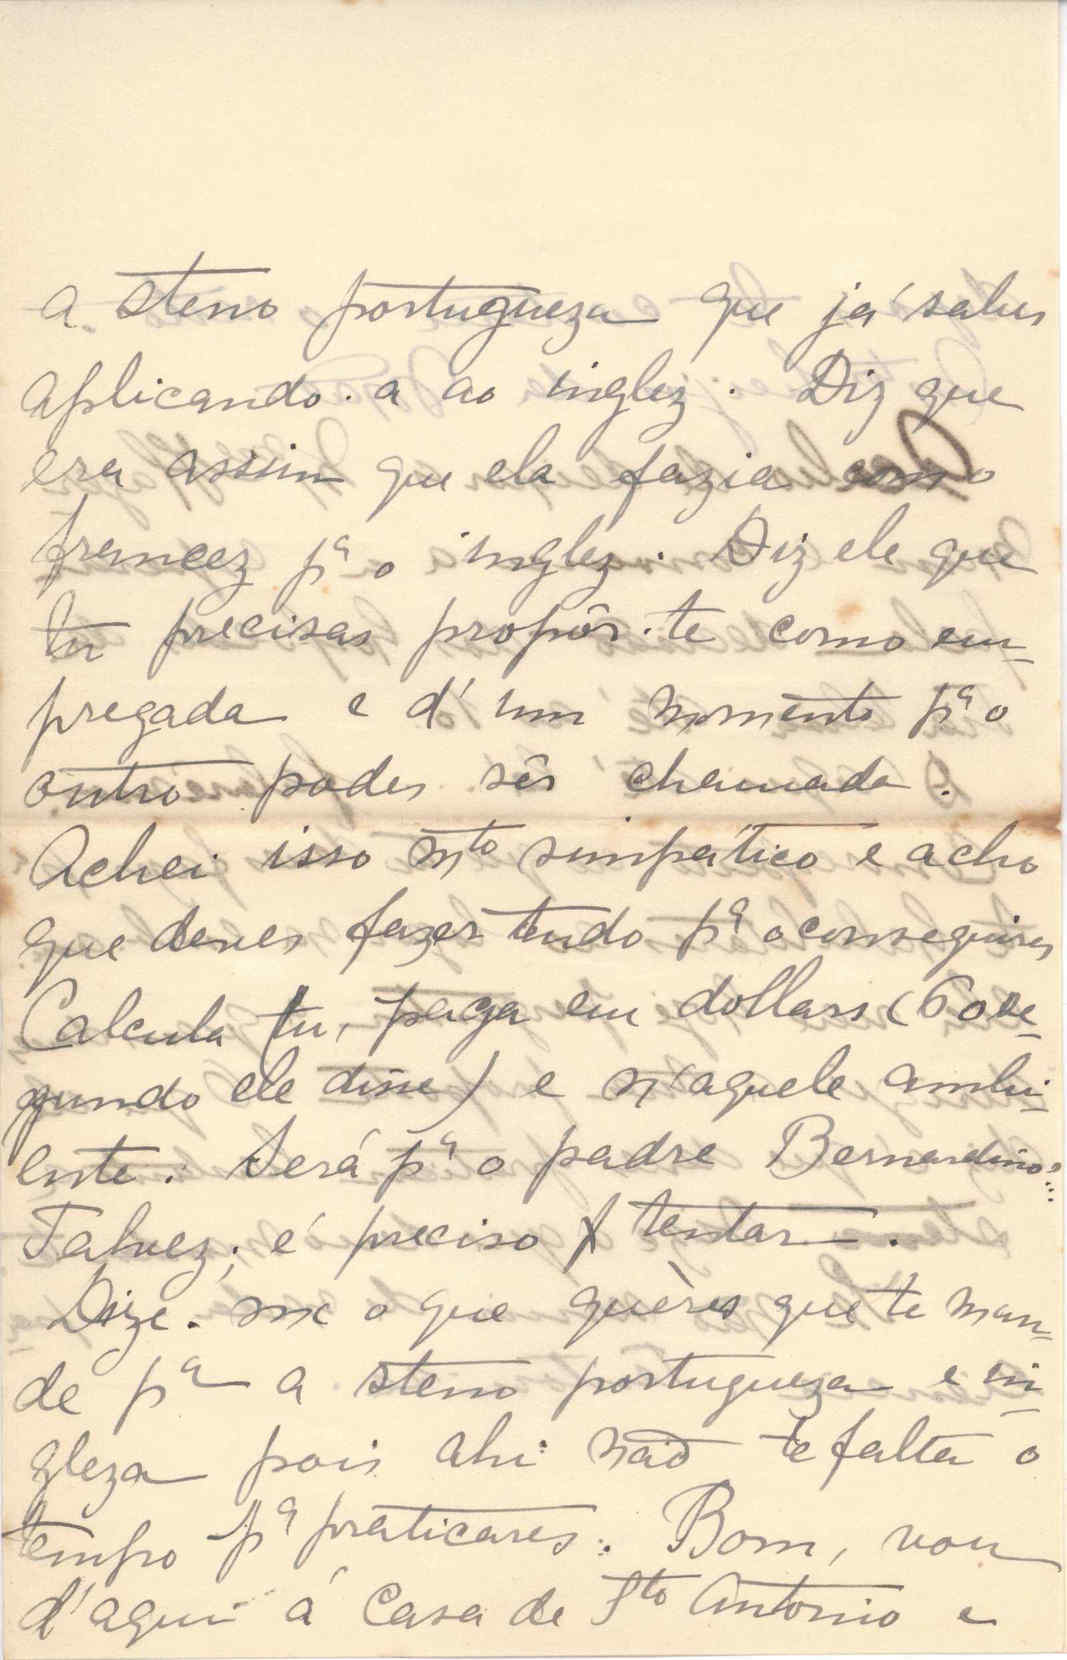 a steno portugueza que já sabes
aplicando-a ao inglez. Diz que
era assim que ela fazia como
francez pª o inglez. Diz ele que
tu precisas propôr-te como em-
pregada e d'um momento pª o
outro podes sêr chamada.
Achei isso mto simpático e acho
que deves fazer tudo pª o conseguires
Calcula tu, paga em dollars (60 se-
gundo ele disse) e n'aquele ambi-
ente. Será pª o padre Bernardino?...
Talvez; é preciso tentar.
Dize-me o que quères que te man-
de pª a steno portugueza e in-
gleza pois ahi não te falta o
tempo pª praticares. Bom, vou
d'aqui á Casa de Sto Antonio e